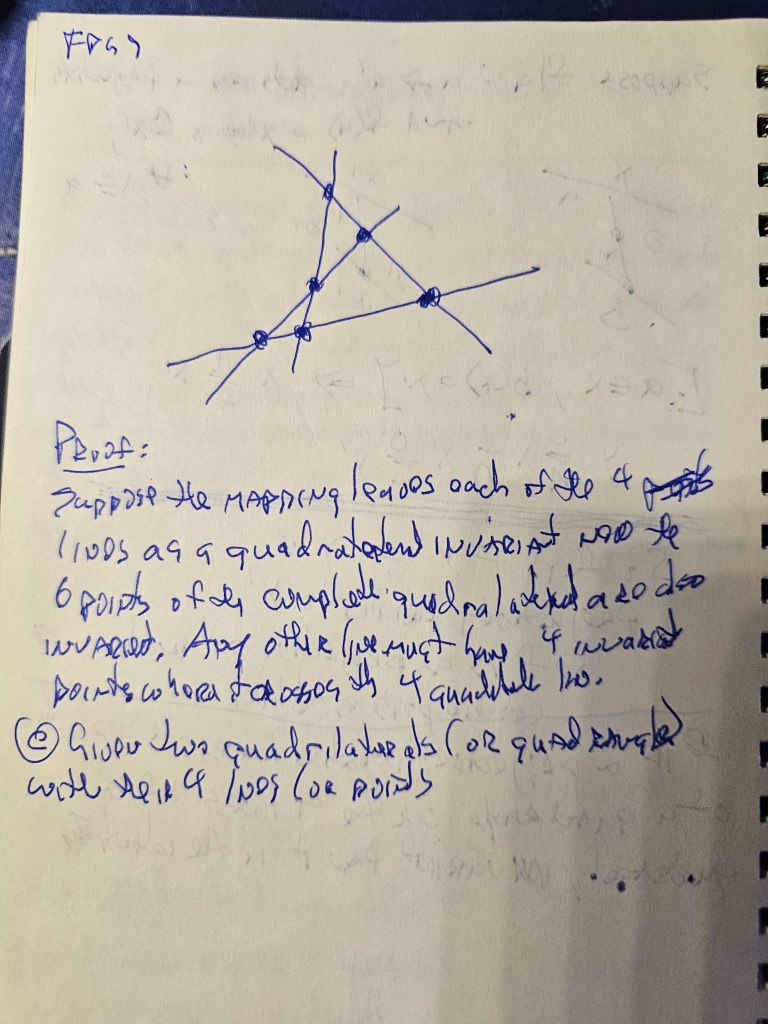 Proof:
Suppose the MAPPING leaves each of the 4
lines as a quadrilateral INVARIANT the
6 points of the complete quadrilateral are also
INVARIANT. Any other line must have 4 invariant
points where it crosses the 4
② Given two quadrilaterals (OR quadrangles)
with their 4 lines (or points